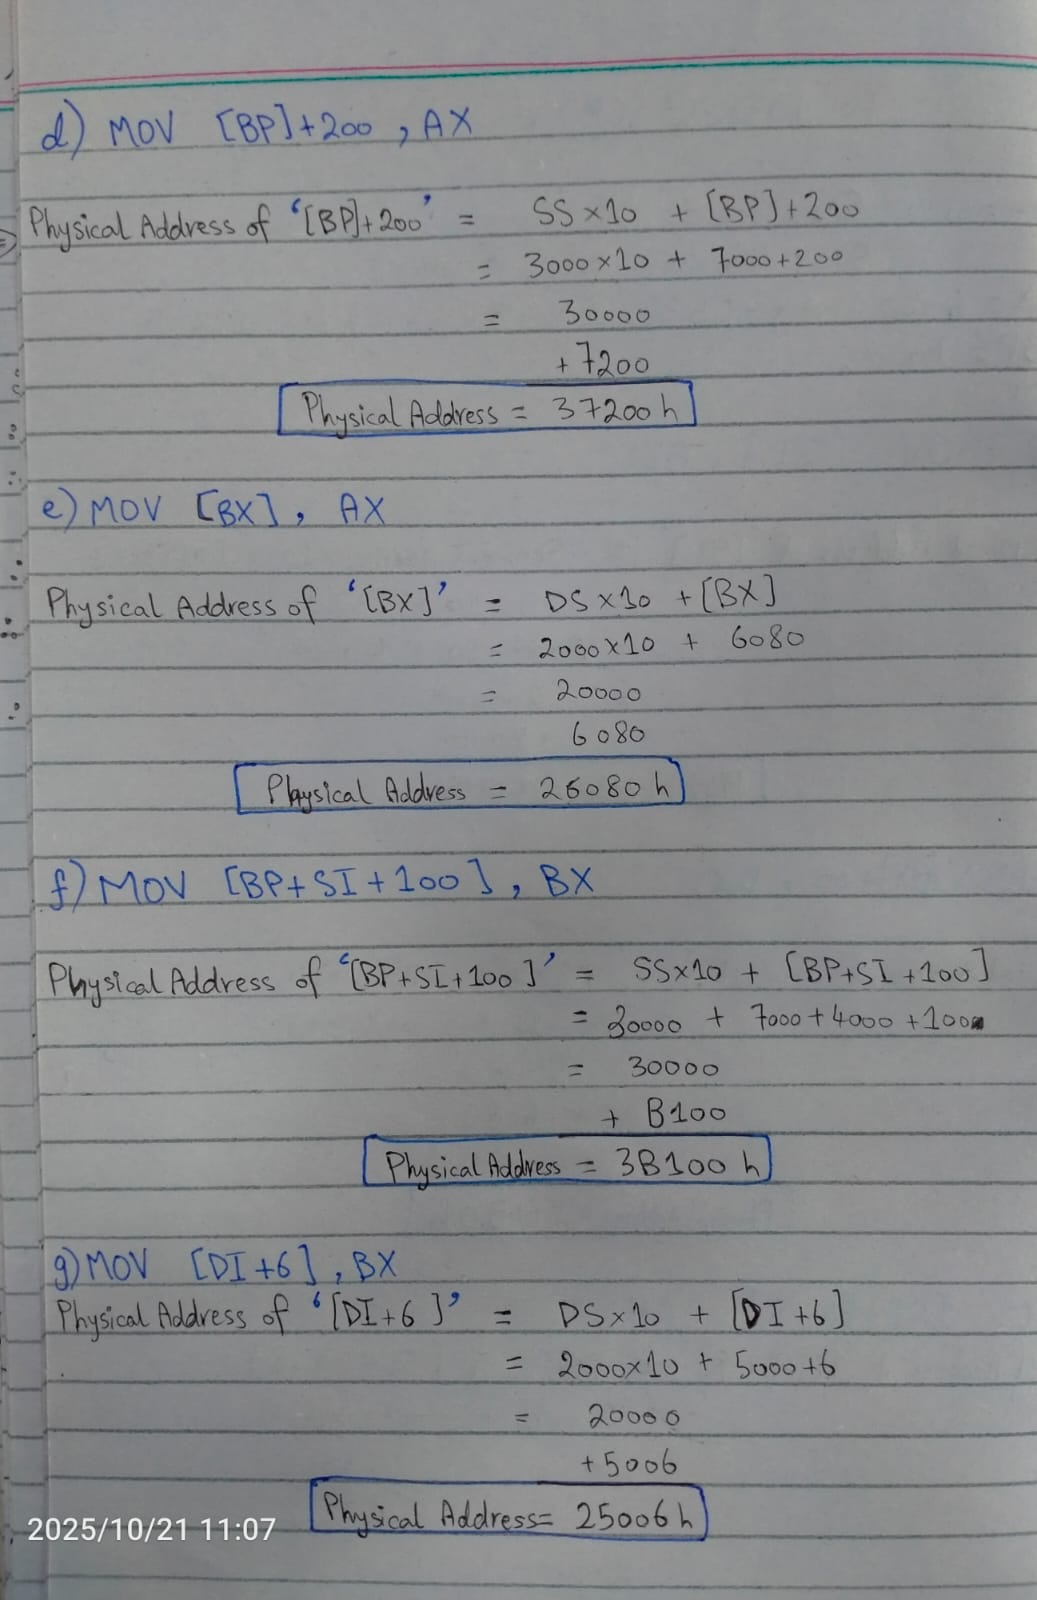 d) MOV [BP]+200 , AX
Physical Address of ‘[BP]+200’ = SS×10 + [BP]+200
= 3000×10 + 7000+200
= 30000
+7200
Physical Address = 37200 h
e) MOV [BX] , AX
Physical Address of ‘[BX]’ = DS×10 + [BX]
= 2000×10 + 6080
= 20000
6080
Physical Address = 26080 h
f) MOV [BP+SI+100] , BX
Physical Address of ‘[BP+SI+100]’ = SS×10 + [BP+SI+100]
= 30000 + 7000+4000+100
= 30000
+ B100
Physical Address = 3B100 h
g) MOV [DI+6] , BX
Physical Address of ‘[DI+6]’ = DS×10 + [DI+6]
= 2000×10 + 5000+6
= 20000
+5006
Physical Address= 25006 h
2025/10/21 11:07